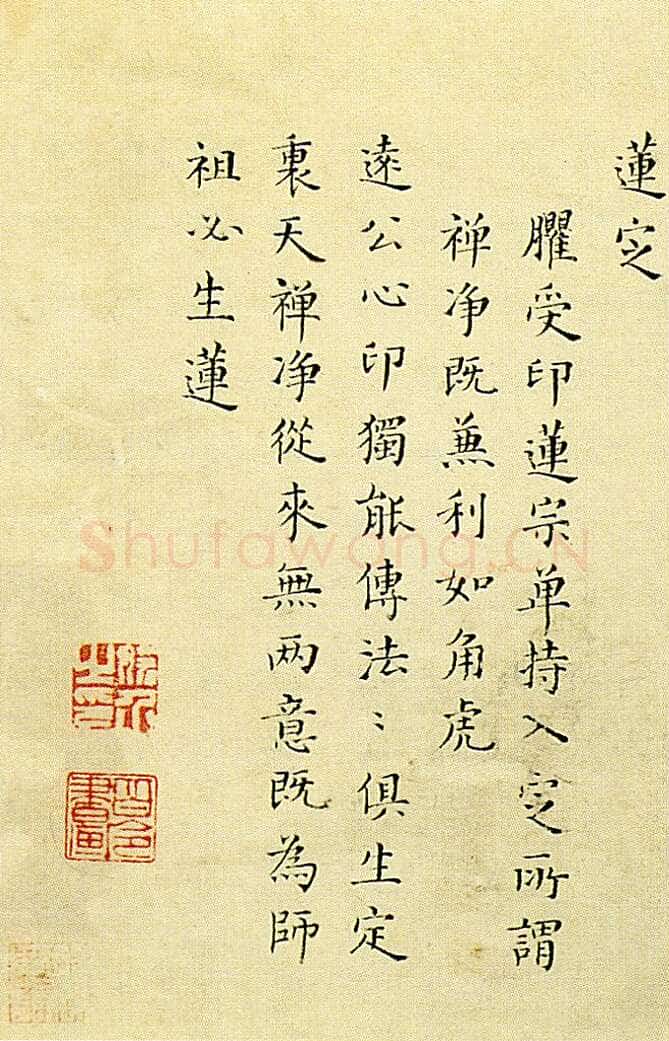 蓮定
臞受印蓮宗单持入定所謂
禅净既蒹利如角虎
遠公心印獨能傳法〻俱生定
裏天禅净從來無两意既為師
祖必生蓮
Shufawang.CN